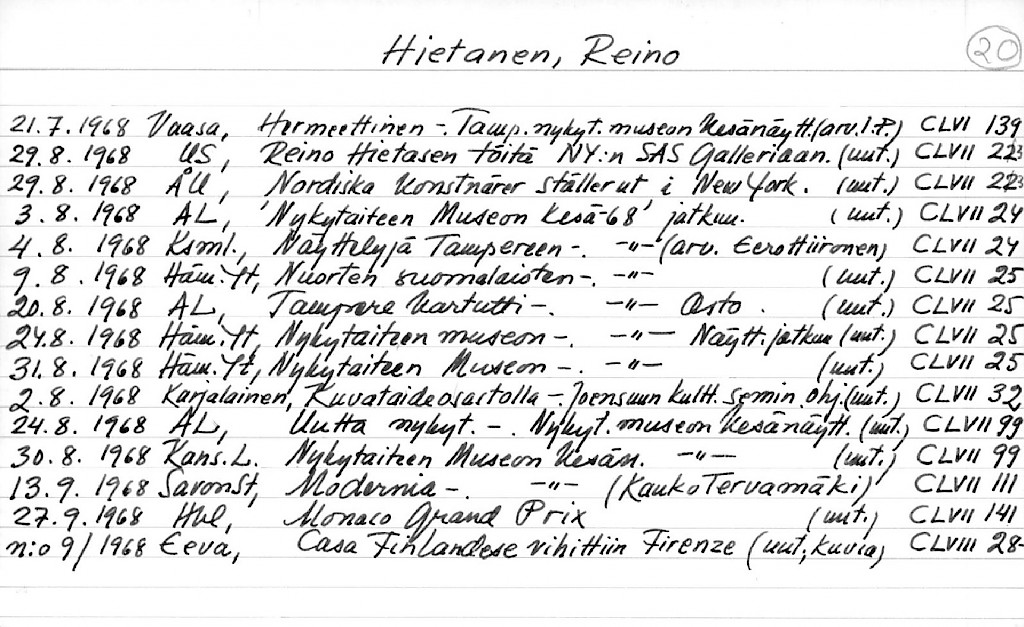 Hietanen, Reino 20
21.7.1968 Vaasa, Hermeettinen -. Tamp. nykyt. museon kesänäytt. (arv. I.P.) CLVI 139
29.8.1968 US, Reino Hietasen töitä NY:n SAS Galleriaan. (uut.) CLVII 223
29.8.1968 ÅU, Nordiska konstnärer ställer ut i New York. (uut.) CLVII 223
3.8.1968 AL, 'Nykytaiteen Museon kesä-68' jatkuu. (uut.) CLVII 24
4.8.1968 Ksml., Näyttelyjä Tampereen -. -"- (arv. Eero Hiironen) CLVII 24
9.8.1968 Häm.Yht, Nuorten suomalaisten -. -"- (uut.) CLVII 25
20.8.1968 AL, Tampere kartutti -. -"- Osto. (uut.) CLVII 25
24.8.1968 Häm.Yht, Nykytaiteen museon -. -"- Näytt. jatkuu (uut.) CLVII 25
31.8.1968 Häm.Yht, Nykytaiteen Museon -. -"- (uut.) CLVII 25
2.8.1968 Karjalainen, Kuvataideosastolla -. Joensuun kultt. semin. ohj. (uut.) CLVII 32
24.8.1968 AL, Uutta nykyt. -. Nykyt. museon kesänäytt. (uut.) CLVII 99
30.8.1968 Kans.L. Nykytaiteen Museon kesän. -"- (uut.) CLVII 99
13.9.1968 SavonSt, Modernia -. -"- (Kauko Tervamäki) CLVII 111
27.9.1968 Hbl, Monaco Grand Prix (uut.) CLVII 141
n:o 9/1968 Eeva, Casa Finlandese vihittiin Firenze (uut, kuvia) CLVIII 28-